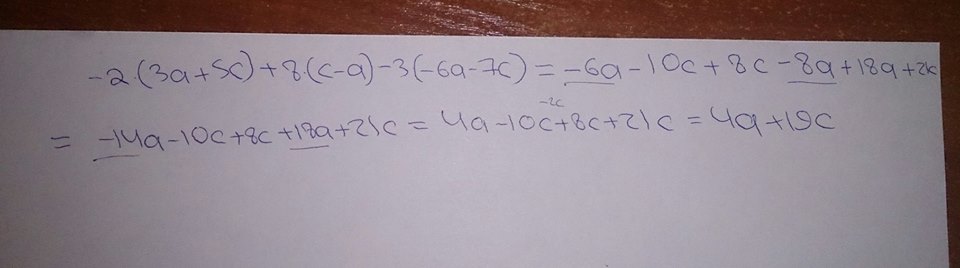 -2·(3a+5c)+8·(c-a)-3(-6a-7c)=-6a-10c+8c-8a+18a+21c
-2c
=-14a-10c+8c+18a+21c=4a-10c+8c+21c=4a+19c